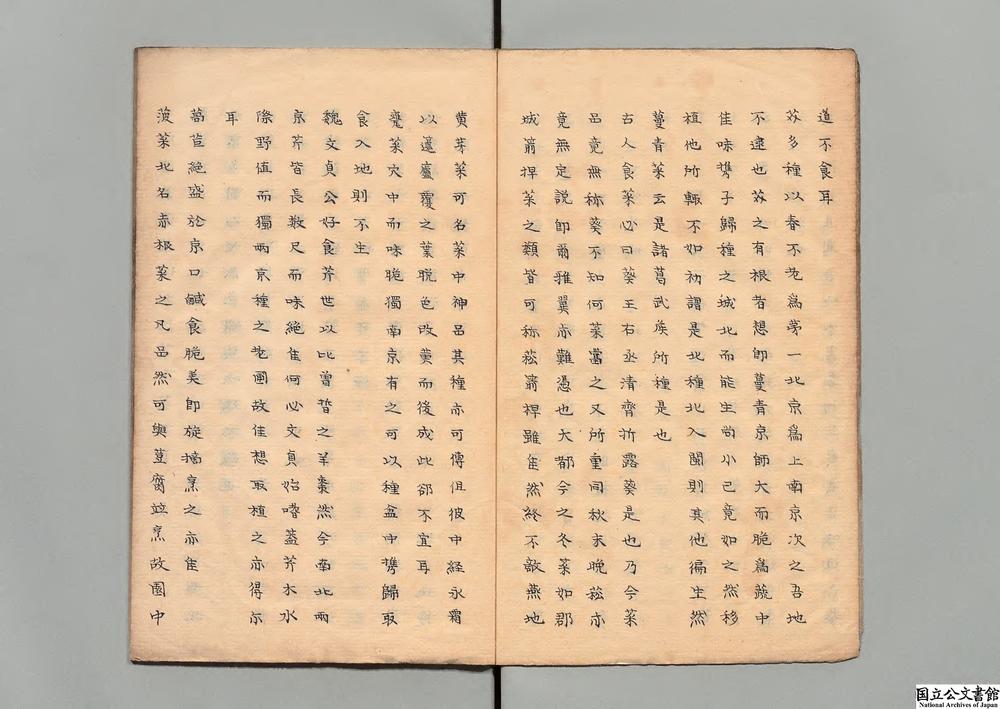 道不食耳
芥多種以春不老為勞一北京為上南京次之吾地
不逮也芥之有根者想即蔓青京師大而脆為蔬中
佳味攜子歸種之城北而能生尚小已竟如之然移
植他所輒不如初謂是北種北入閩則其他徧生然
蔓青菜云是諸葛武侯所種是也
古人食菜必曰葵王右丞清齋折露葵是也乃今菜
品竟無称葵不知何菜當之又所重同秋末晚菘亦
竟無定説即爾雅翼亦難憑也大都今之冬菜如郡
城箭捍菜之類皆可称菘箭桿雖佳然終不敵燕地
黄芽菜可名菜中神品其種亦可傳但彼中経氷霜
以蘧廬覆之葉脱色改黄而後成此郤不宜耳
甕菜穴中而味脆獨南京有之可以種盆中攜歸取
食入地則不生
魏文貞公好食芹世以比曾晳之羊棗然今南北兩
京芹皆長数尺而味絶佳何必文貞始嗜葢芹木水
際野値而獨兩京種之老圃故佳想取植之亦得尔
耳
萵苣絶盛於京口鹹食脆美即旋摘烹之亦佳
菠菜北名赤根菜之凡品然可與荳腐竝烹故園中
国立公文書館
National Archives of Japan